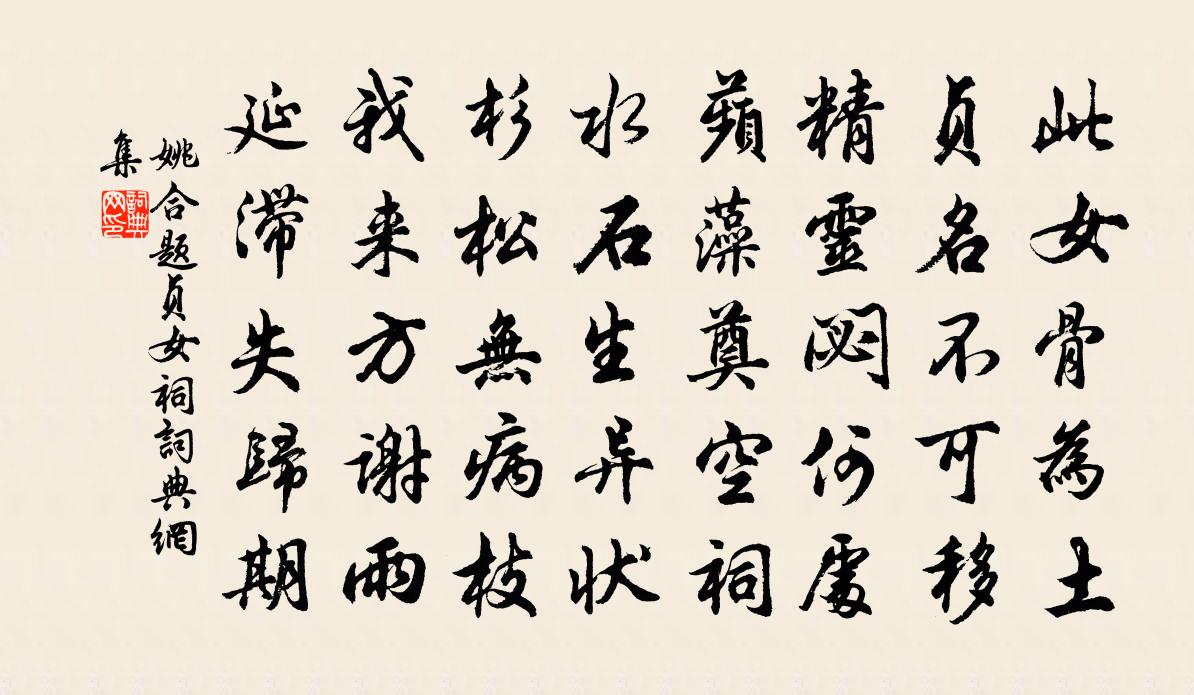 此女骨為土
貞名不可移
精靈閟何處
蘋藻奠空祠
水石生异狀
杉松無病枝
我来方謝雨
延滯失歸期
姚合题貞女祠詞典網
集
詞典網印